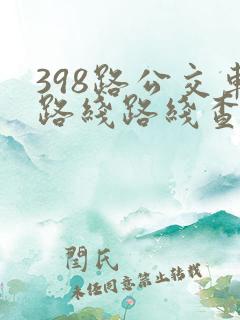 398路公交車
路綫路綫查
閆氏
未任同意禁止转载